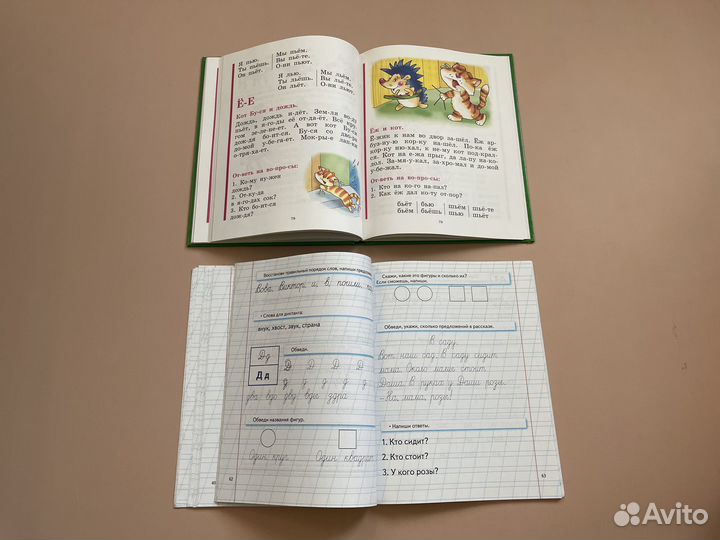 Я пью.
Ты пьёшь.
Он пьёт.
Мы пьём.
Вы пьё-те.
О-ни пьют.
Я лью.
Ты льёшь.
Он льёт.
Мы льём.
Вы льё-те.
О-ни льют.
Ё-Е
Кот Бу-ся и дождь.
Дождь, дождь и-дёт. Зем-ля во-ду
пьёт, в я-го-ды её от-да-ёт. Всё кру-
гом зе-ле-не-ет. А вот кот Бу-ся
дож-дя бо-ит-ся. Бу-ся со дво-ра
до-мой у-бе-га-ет. Мок-ры-е лап-ки
о-тря-ха-ет.
От-веть на во-про-сы:
1. Ко-му ну-жен
дождь?
2. От-ку-да
в я-го-дах сок?
3. Кто бо-ит-ся
дож-дя?
78
Ёж и кот.
Ё-жик к нам во двор за-шёл. Ёж ар-
буз-ну-ю кор-ку на-шёл. По-ка ёж
кор-ку ню-хал, к не-му кот под-крал-
ся. Кот на е-жа прыг, да ла-пу на-ко-
лол. За-мя-у-кал, за-хро-мал и до-мой
у-бе-жал.
От-веть на во-про-сы:
1. Кто на ко-го на-пал?
2. Как ёж дал ко-ту от-пор?
бьёт бью шьём шьё-те
бьём бьёшь шью шьёт
79
Восстанови правильный порядок слов, напиши
Вова, Виктор, и, в, пошли,
• Слова для диктанта:
внук, хвост, звук, страна
Д д
Д д
Обведи.
Д Д Д Д
д д д д д
два вдо дву вды здра
Обведи названия фигур.
Один круг. Один квадрат.
62
Скажи, какие это фигуры и сколько их?
Если сможешь, напиши.
Обведи, укажи, сколько предложений в рассказе.
В саду.
Вот наш сад. В саду сидит
мама. Около мамы стоит
Даша. В руках у Даши розы.
– На, мама, розы!
• Напиши ответы.
1. Кто сидит?
2. Кто стоит?
3. У кого розы?
63
Avito